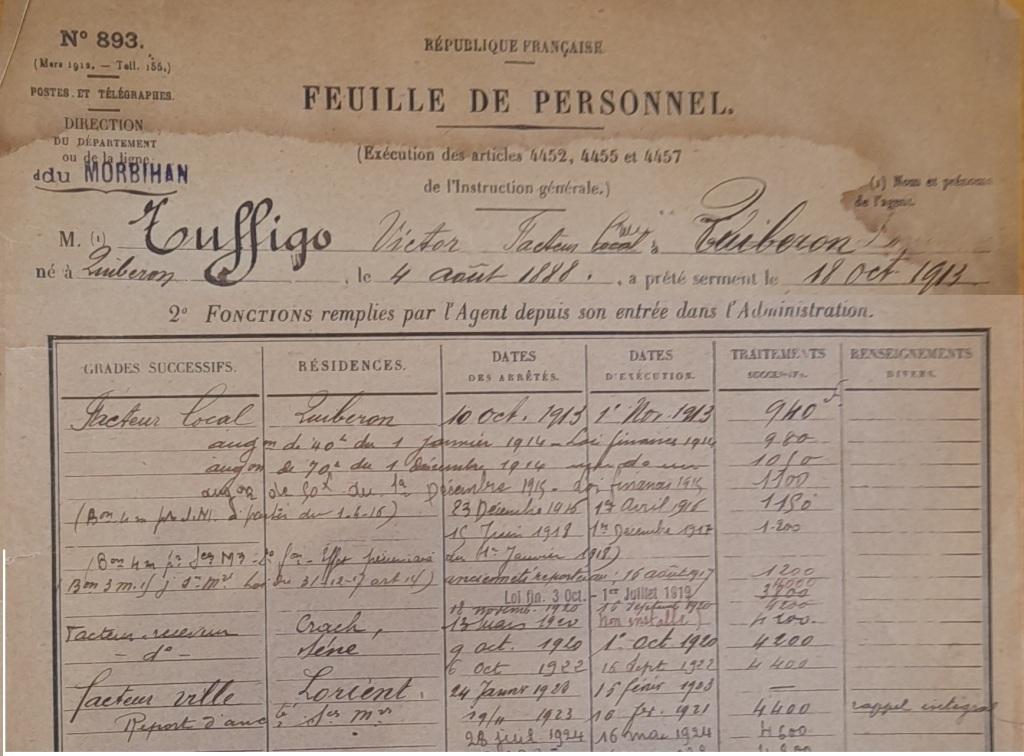 N° 893.
RÉPUBLIQUE FRANÇAISE
(Mars 1912. — Tell. 155.)
POSTES ET TÉLÉGRAPHES.
FEUILLE DE PERSONNEL.
DIRECTION
DU DÉPARTEMENT
ou de la ligne
d du MORBIHAN
(Exécution des articles 4452, 4455 et 4457
de l'Instruction générale.)
(1) Nom et prénoms
de l'agent.
M. (1) Tuffigo Victor Facteur local à Quiberon
né à Quiberon, le 4 août 1888., a prêté serment le 18 Oct 1913
2° FONCTIONS remplies par l'Agent depuis son entrée dans l'Administration.
GRADES SUCCESSIFS. RÉSIDENCES. DATES DES ARRÊTÉS. DATES D'EXÉCUTION. TRAITEMENTS SUCCESSIFS. RENSEIGNEMENTS DIVERS.
Facteur local Quiberon 10 Oct. 1913 1er Nov. 1913 940 f
augon de 40f du 1 Janvier 1914 - Loi finances 1914 980
augon de 70f du 1 décembre 1914 1050
augon de 50f du 1er Décembre 1915 - Loi finances 1915 1100
(Bon 4 m à partir du 1-4-16) 23 Décembre 1916 1er Avril 1916 1150
15 Juin 1918 1er Décembre 1917 1200
(Bon 4 m - Effet pécuniaire du 1er Janvier 1918)
(Bon 3 m 1/ j Loi du 31-12-17 art 14) ancienneté reportée au : 16 août 1917 1200
Loi fin. 3 Oct. - 1er Juillet 1919 3800
18 novemb. 1920 15 Septemb 1920 4200
Facteur-receveur Crach, 13 mars 1920 (non installé) 4200
- d° - Séné 9 oct. 1920 1er oct 1920 4200
6 Oct 1922 16 Sept 1922 4400
facteur ville Lorient. 24 Janvr 1923 15 févir 1923 —
Report d'anc té Ser mre 19/11 1923 16 fév. 1921 4400 rappel intégral
28 juil 1924 16 mai 1924 4500